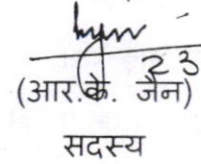 23
(आर.के. जैन)
सदस्य